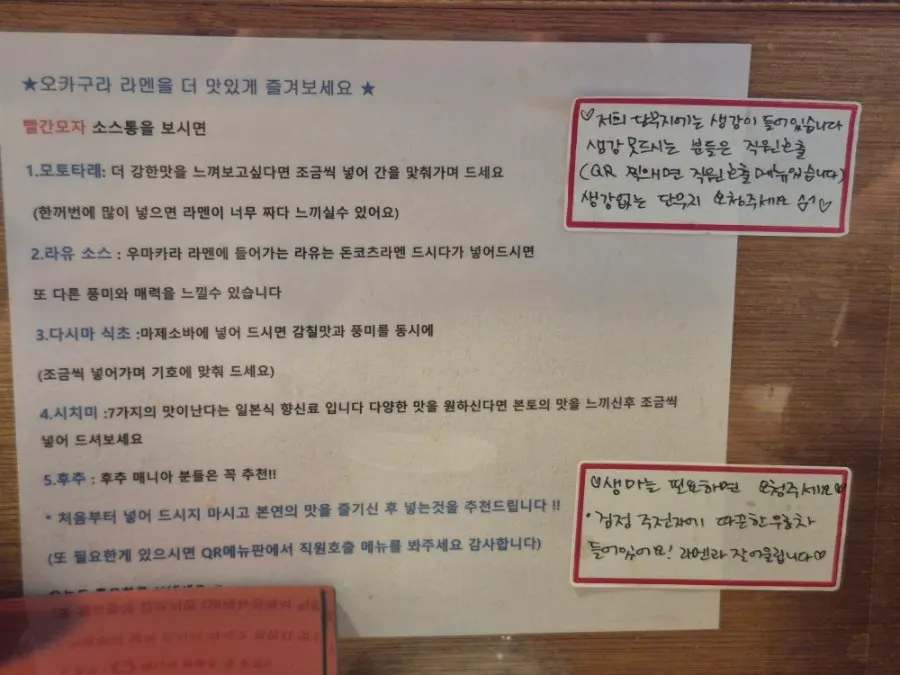 ★오카구라 라멘을 더 맛있게 즐겨보세요 ★
빨간모자 소스통을 보시면
1.모토타레: 더 강한맛을 느껴보고싶다면 조금씩 넣어 간을 맞춰가며 드세요
(한꺼번에 많이 넣으면 라멘이 너무 짜다 느끼실수 있어요)
2.라유 소스 : 우마카라 라멘에 들어가는 라유는 돈코츠라멘 드시다가 넣어드시면
또 다른 풍미와 매력을 느낄수 있습니다
3.다시마 식초 :마제소바에 넣어 드시면 감칠맛과 풍미를 동시에
(조금씩 넣어가며 기호에 맞춰 드세요)
4.시치미 :7가지의 맛이난다는 일본식 향신료 입니다 다양한 맛을 원하신다면 본토의 맛을 느끼신후 조금씩
넣어 드셔보세요
5.후추 : 후추 매니아 분들은 꼭 추천!!
* 처음부터 넣어 드시지 마시고 본연의 맛을 즐기신 후 넣는것을 추천드립니다 !!
(또 필요한게 있으시면 QR메뉴판에서 직원호출 메뉴를 봐주세요 감사합니다)
♡저희 단무지에는 생강이 들어있습니다
생강 못드시는 분들은 직원호출
(QR 찍으면 직원호출 메뉴있습니다)
생강없는 단무지 요청주세요 ♡
♡생마늘 필요하면 요청주세요♡
• 검정 주전자에 따끈한 우롱차
들어있어요! 라멘과 잘어울립니다♡